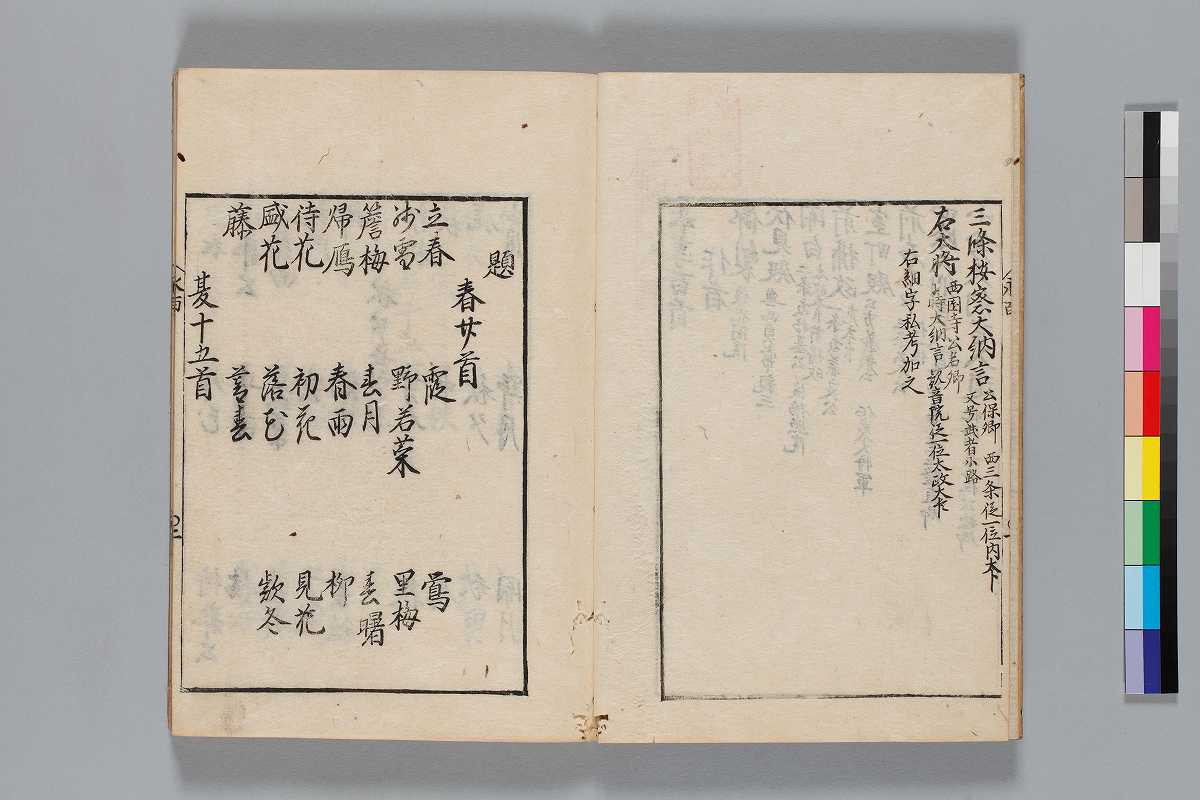 三條按察大納言 公保卿 西三条従一位内大下
又号武者小路
右大将 西園寺公名卿
于時大納言 観音院従一位太政大下
右細字私考加之
題
春廿首
立春 霞 鶯
残雪 野若菜 里梅
簷梅 春月 春曙
帰鴈 春雨 柳
待花 初花 見花
盛花 落花 欵冬
藤 暮春
夏十五首